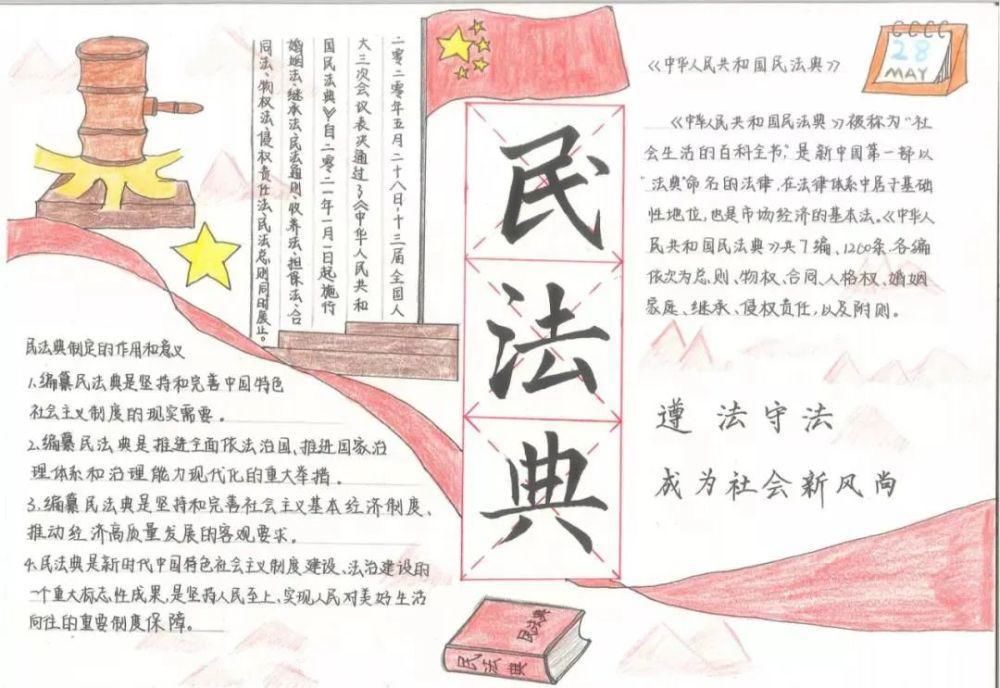 二零二零年五月二十八日,十三届全国人
大三次会议表决通过了《中华人民共和
国民法典》自二零二一年一月一日起施行
婚姻法、继承法、民法通则、收养法、担保法、合
同法、物权法、侵权责任法、民法总则同时废止。
民法典制定的作用和意义
1.编纂民法典是坚持和完善中国特色
社会主义制度的现实需要。
2.编纂民法典是推进全面依法治国、推进国家治
理体系和治理能力现代化的重大举措。
3.编纂民法典是坚持和完善社会主义基本经济制度、
推动经济高质量发展的客观要求。
4.民法典是新时代中国特色社会主义制度建设、法治建设的
一个重大标志性成果,是坚持人民至上、实现人民对美好生活
向往的重要制度保障。
民
法
典
民法典
民法典
28
MAY
《中华人民共和国民法典》
《中华人民共和国民法典》被称为"社
会生活的百科全书",是新中国第一部以
"法典"命名的法律,在法律体系中居于基础
性地位,也是市场经济的基本法。《中华人
民共和国民法典》共7编、1260条,各编
依次为总则、物权、合同、人格权、婚姻
家庭、继承、侵权责任,以及附则。
遵法守法
成为社会新风尚